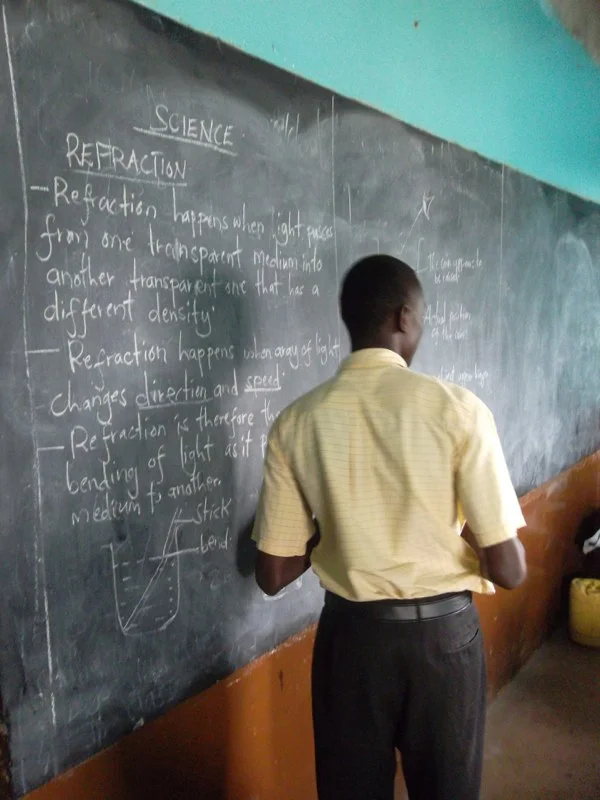 SCIENCE
REFRACTION
- Refraction happens when light passes
from one transparent medium into
another transparent one that has a
different density.
- Refraction happens when a ray of light
changes direction and speed.
- Refraction is therefore the
bending of light as it
medium to another
stick
bend.
The coin appears to
be raised
Actual position
of the coin